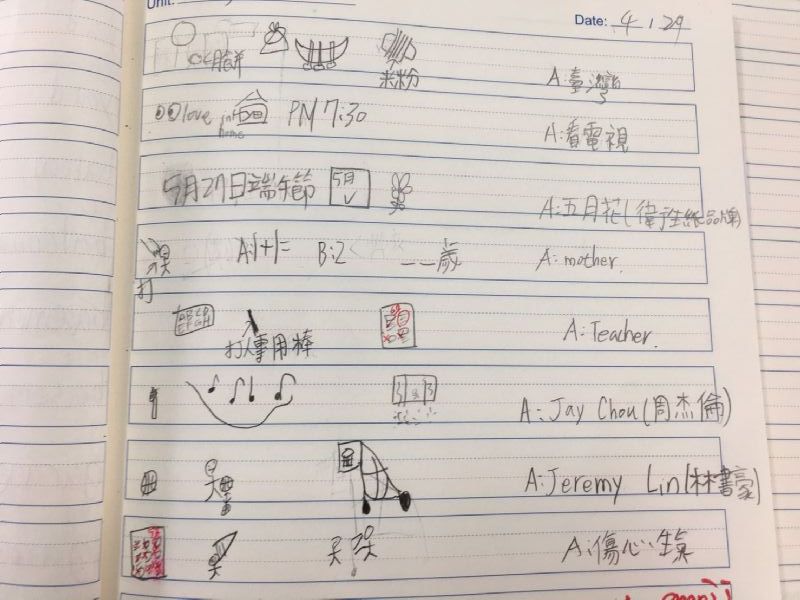 Unit:
Date: 4 / 29
月餅 米粉 A:臺灣
love in home PM 7:30 A:看電視
5月27日端午節 5月 A:五月花(衛生紙品牌)
打 A:1+1= B:2 __歲 A: mother.
ABCD EFGH 打人專用棒 A:Teacher.
A: Jay Chou(周杰倫)
A:Jeremy Lin(林書豪)
A:傷心、生氣